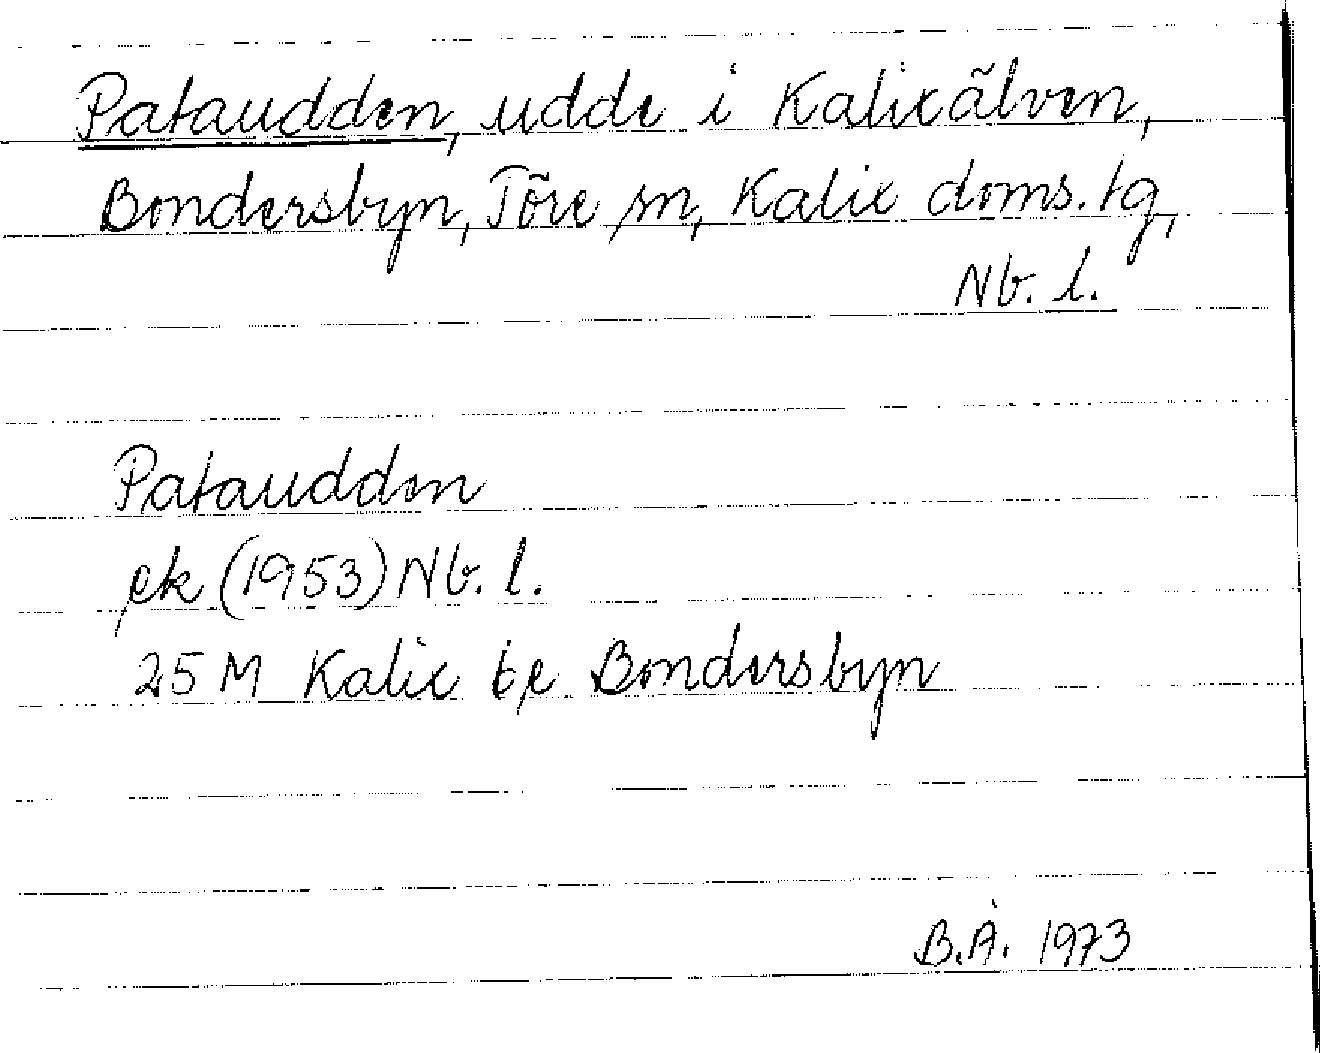 Pataudden, udde i Kalixälven,
Bondersbyn, Töre sn, Kalix doms. tg,
Nb. l.
Pataudden
ek (1953) Nb. l.
25 M Kalix be Bondersbyn
B.Å. 1973